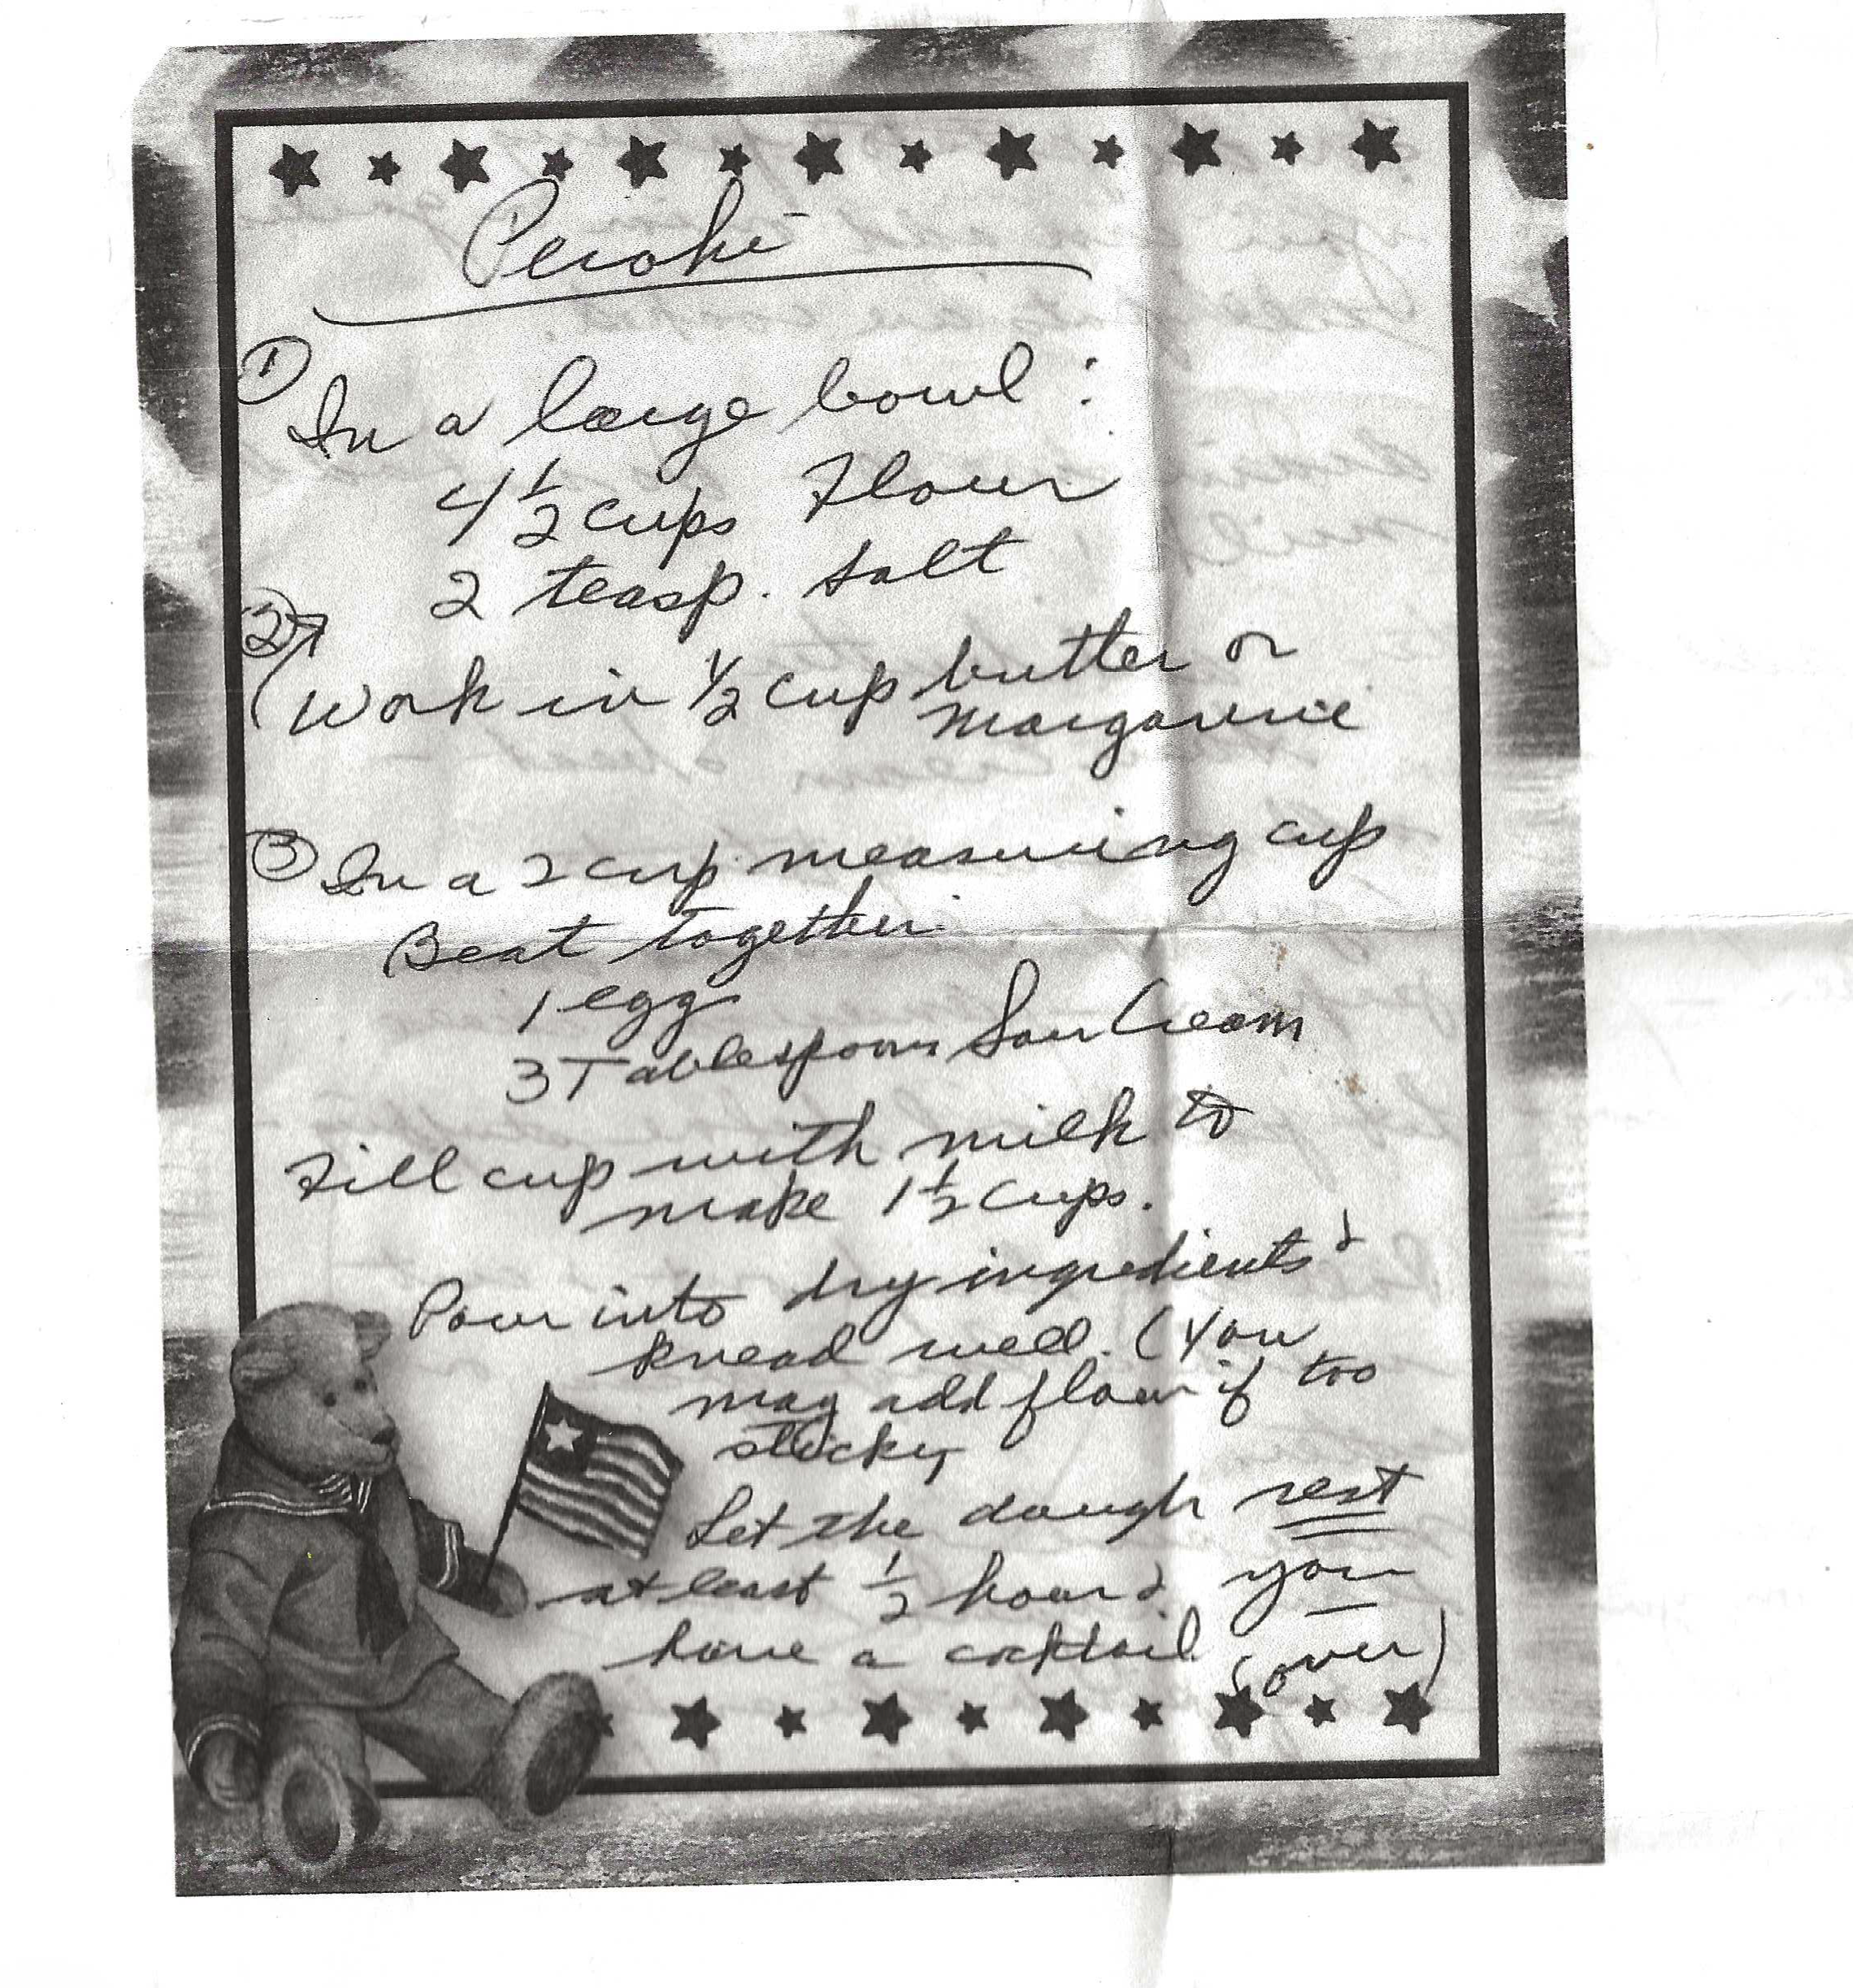 Perohi
① In a large bowl :
4 1/2 cups Flour
2 teasp. salt
② Work in 1/2 cup butter or
margarine
③ In a 2 cup measuring cup
Beat together
1 egg
3 Tablespoons Sour Cream
Fill cup with milk to
make 1 1/2 cups.
Pour into dry ingredients &
knead well. (You
may add flour if too
sticky
Let the dough rest
at least 1/2 hour & you
have a cocktail (over)